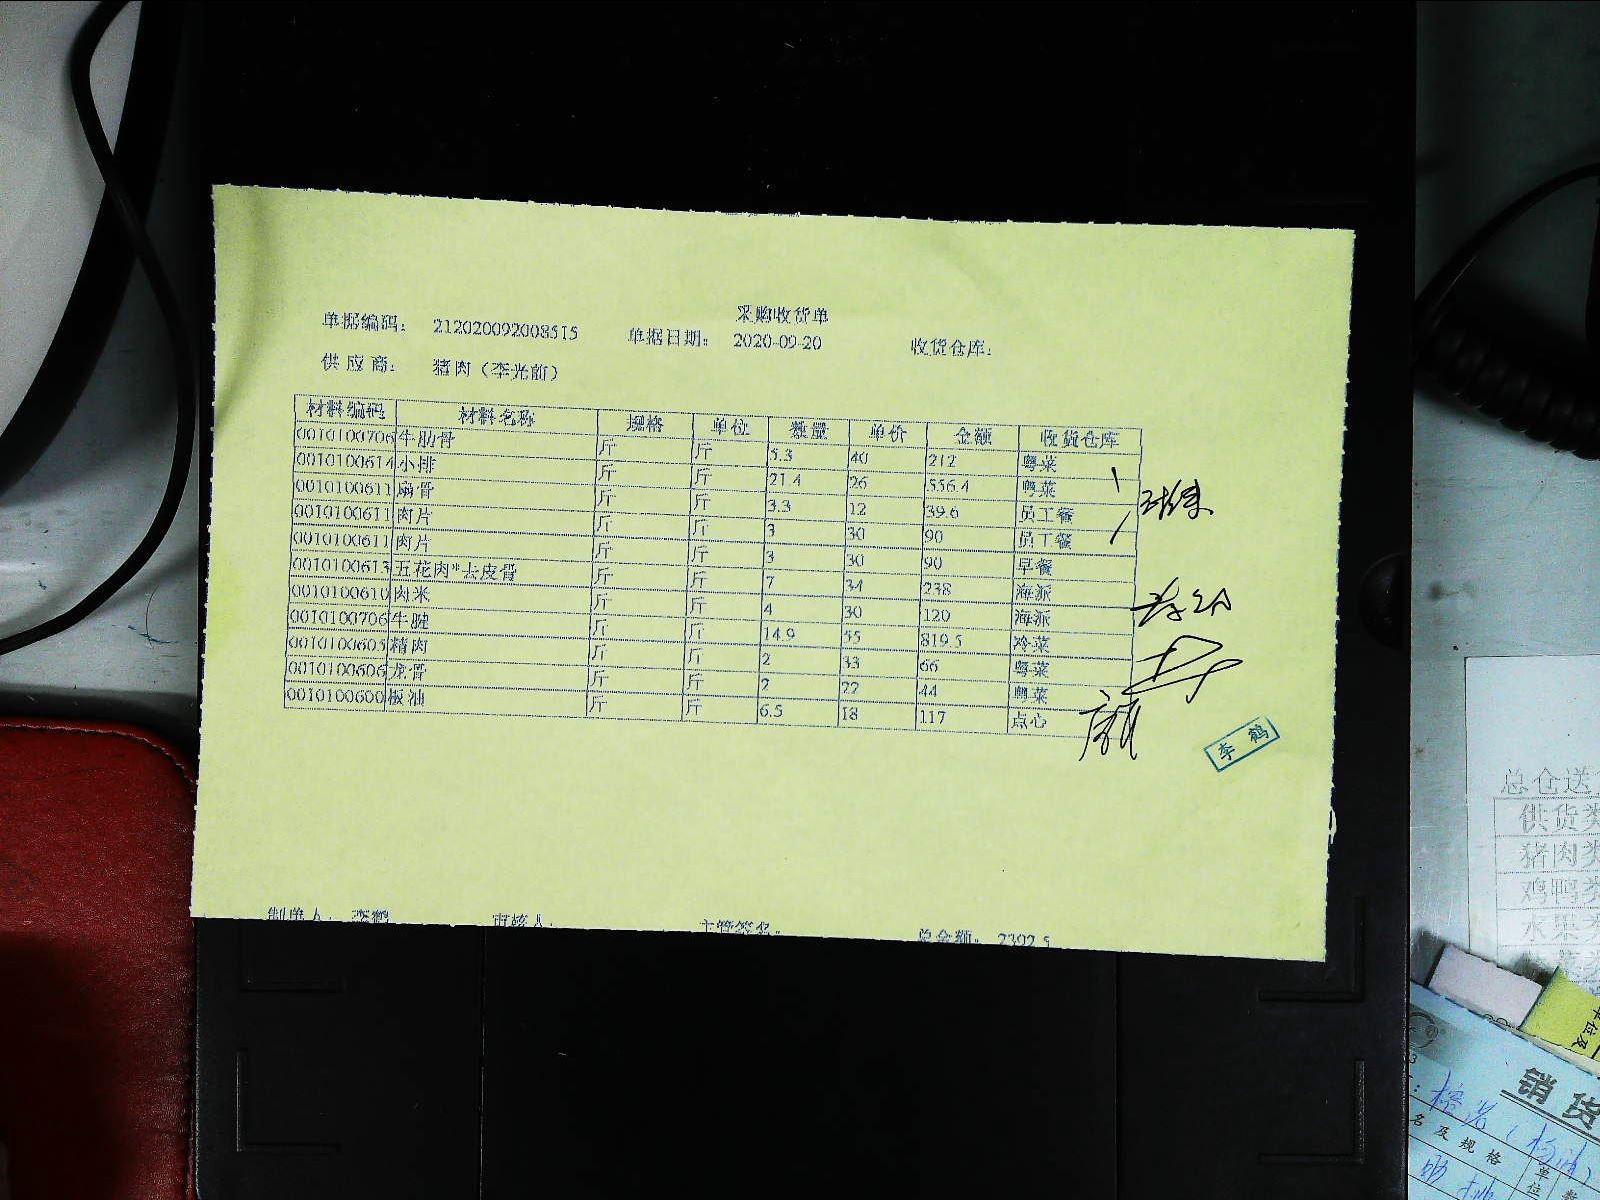 采购收货单
单据编码： 212020092008515 单据日期： 2020-09-20 收货仓库：
供应商： 猪肉（李光前）
材料编码 材料名称 规格 单位 数量 单价 金额 收货仓库
0010100706 牛肋骨 斤 斤 5.3 40 212 粤菜
0010100614 小排 斤 斤 21.4 26 556.4 粤菜
0010100611 扇骨 斤 斤 3.3 12 39.6 员工餐
0010100611 肉片 斤 斤 3 30 90 员工餐
0010100611 肉片 斤 斤 3 30 90 早餐
0010100613 五花肉*去皮骨 斤 斤 7 34 238 海派
0010100610 肉米 斤 斤 4 30 120 海派
0010100706 牛腱 斤 斤 14.9 55 819.5 冷菜
0010100605 精肉 斤 斤 2 33 66 粤菜
0010100606 龙骨 斤 斤 2 22 44 粤菜
0010100600 板油 斤 斤 6.5 18 117 点心
李鹤
制单人： 李鹤 审核人： 主管签名： 总金额： 2392.5
总仓送
供货类
猪肉类
鸡鸭类
水果类
销货
名及规格
单位